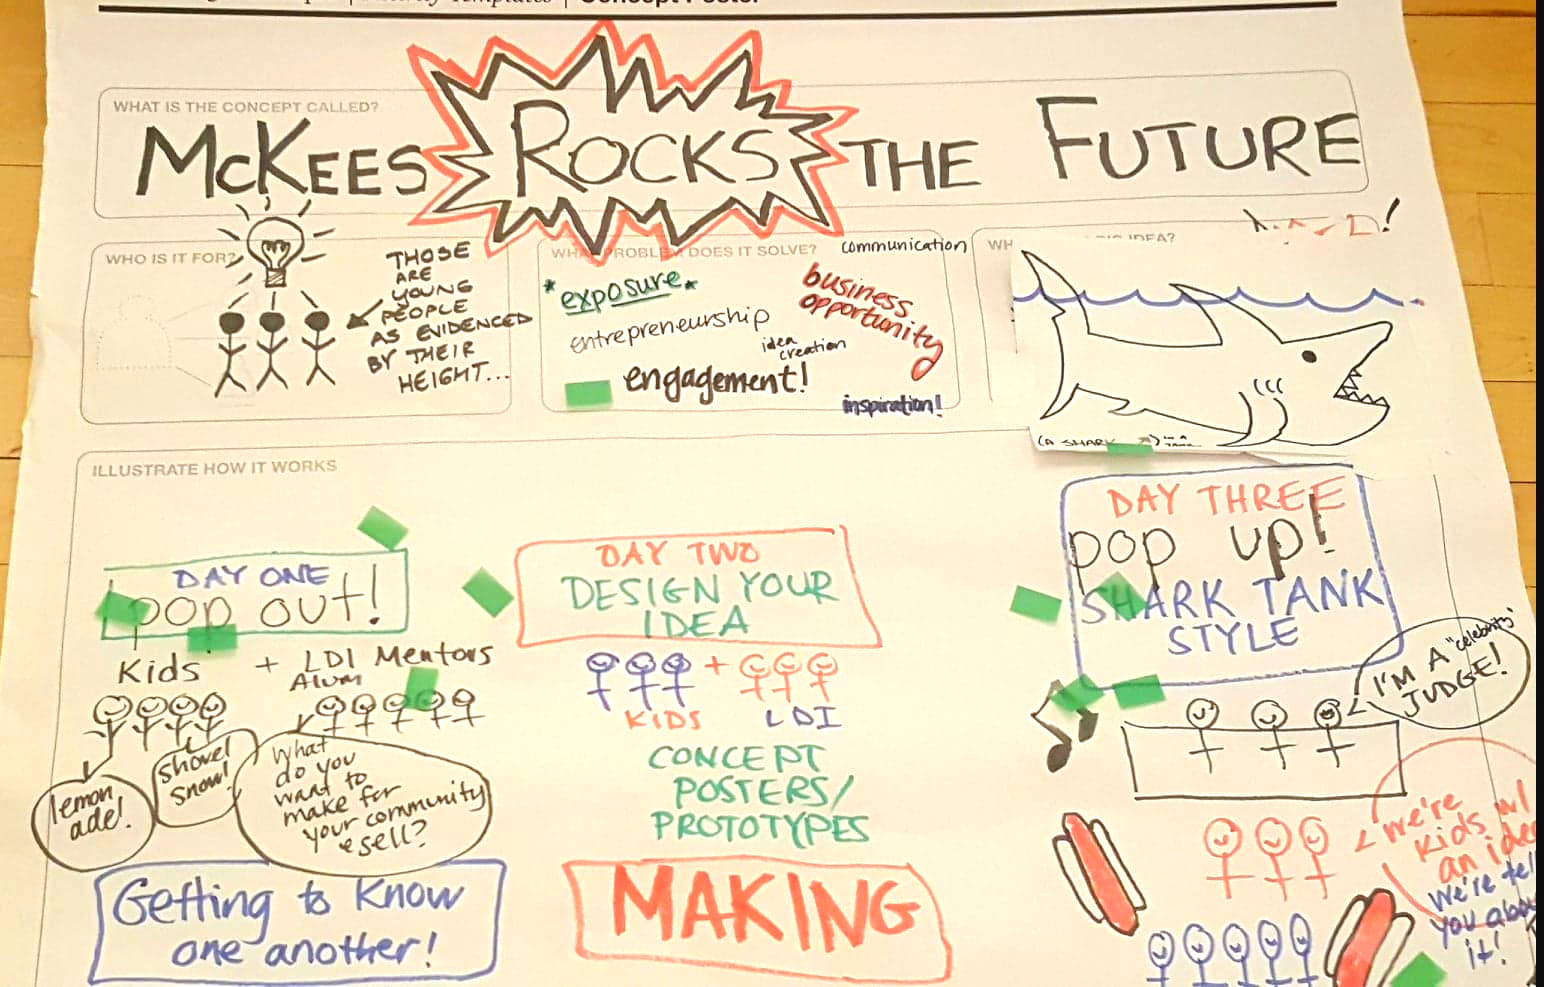 WHAT IS THE CONCEPT CALLED?
McKEES ROCKS THE FUTURE
WHO IS IT FOR?
THOSE
ARE
YOUNG
PEOPLE
AS EVIDENCED
BY THEIR
HEIGHT...
WHAT PROBLEM DOES IT SOLVE?
communication
*exposure*
business
opportunity
entrepreneurship
idea
creation
engagement!
inspiration!
IDEA?
(A SHARK
ILLUSTRATE HOW IT WORKS
DAY ONE
pop out!
Kids + LDI Mentors
Alum
lemon
ade!
shovel
snow!
What
do you
want to
make for
your community
& sell?
Getting to Know
one another!
DAY TWO
DESIGN YOUR
IDEA
+
KIDS LDI
CONCEPT
POSTERS/
PROTOTYPES
MAKING
DAY THREE
pop up!
SHARK TANK
STYLE
I'M A "celebrity"
JUDGE!
we're
kids w/
an idea
we're
you
it!